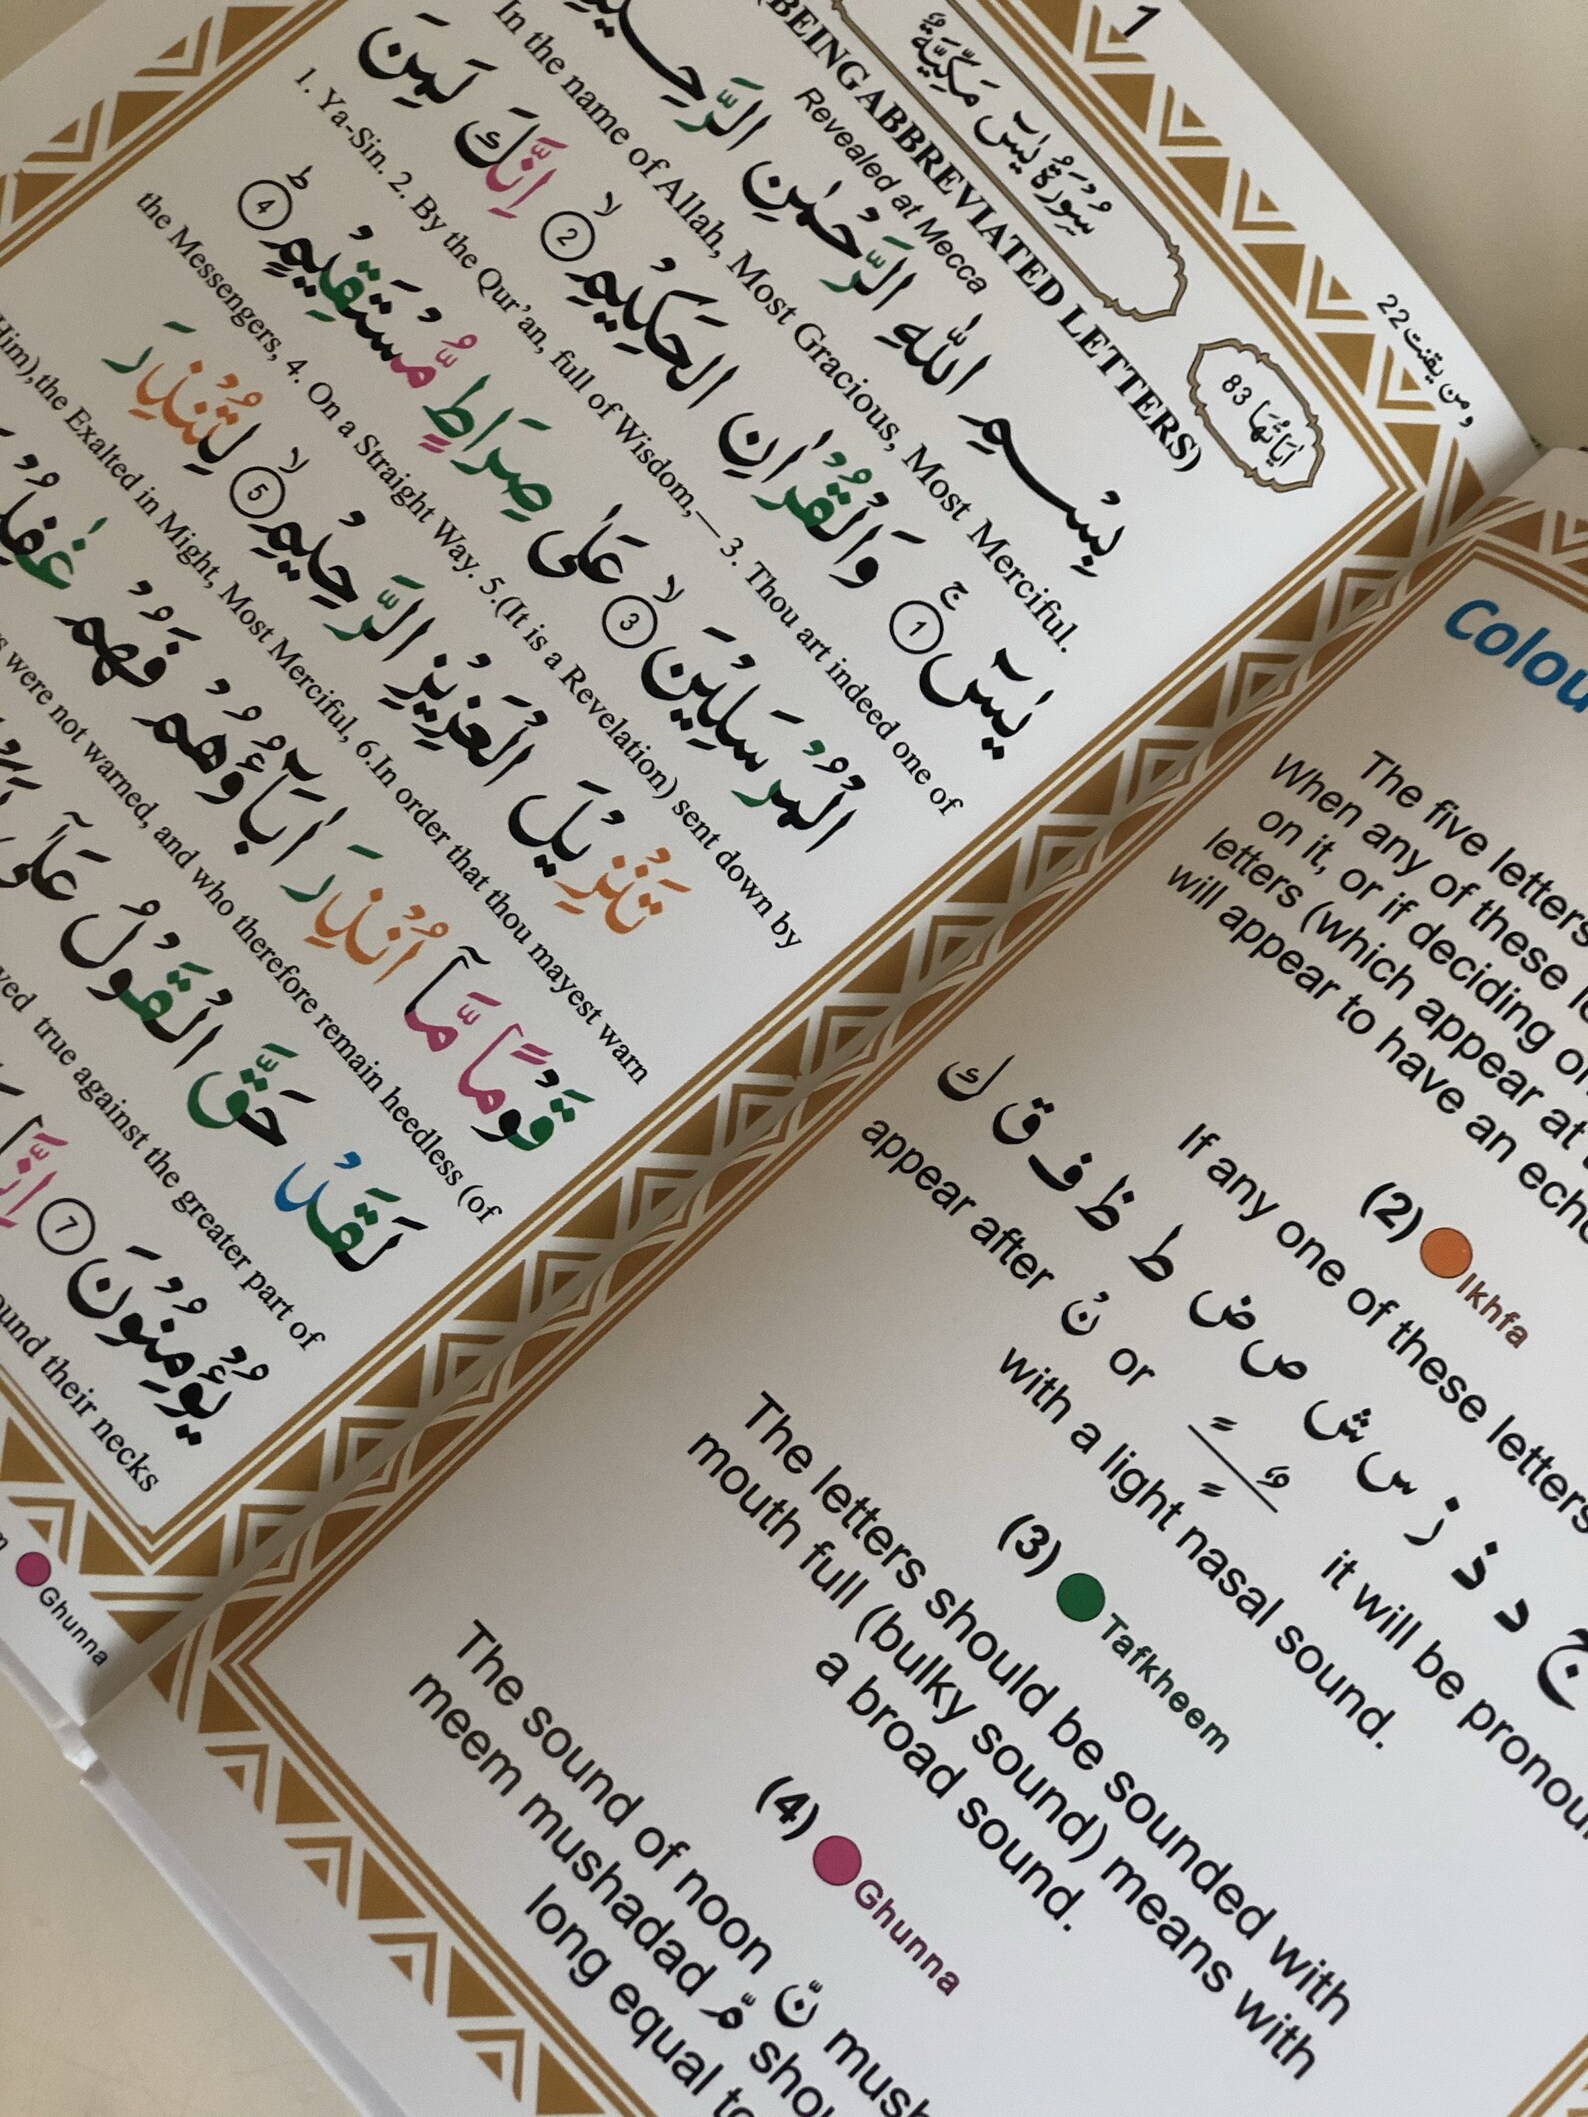 1
ومن يقنت 22
سُوْرَةُ يٰسٓ مَكِّيَّةٌ
اٰيَاتُهَا 83
(BEING ABBREVIATED LETTERS)
Revealed at Mecca
بِسْمِ اللّٰهِ الرَّحْمٰنِ الرَّحِيْمِ
In the name of Allah, Most Gracious, Most Merciful.
يٰسٓ ① ۚ وَالْقُرْاٰنِ الْحَكِيْمِ ② ۙ اِنَّكَ لَمِنَ
1. Ya-Sin. 2. By the Qur'an, full of Wisdom,— 3. Thou art indeed one of
الْمُرْسَلِيْنَ ③ ۙ عَلٰى صِرَاطٍ مُّسْتَقِيْمٍ ④ ؕ
the Messengers, 4. On a Straight Way. 5.(It is a Revelation) sent down by
تَنْزِيْلَ الْعَزِيْزِ الرَّحِيْمِ ⑤ ۙ لِتُنْذِرَ
Him),the Exalted in Might, Most Merciful, 6.In order that thou mayest warn
قَوْمًا مَّآ اُنْذِرَ اٰبَآؤُهُمْ فَهُمْ غٰفِلُوْ
were not warned, and who therefore remain heedless (of
لَقَدْ حَقَّ الْقَوْلُ عَلٰٓى
true against the greater part of
يُؤْمِنُوْنَ ⑦ اِنَّا
their necks
Ghunna
Colou
The five letters
When any of these
on it, or if deciding
letters (which appear at
will appear to have an
(2) Ikhfa
If any one of these letters
ج د ذ ز س ش ص ض ط ظ ف ق ك
appear after نْ or ـًـٍـٌ it will be
with a light nasal sound.
(3) Tafkheem
The letters should be sounded with
mouth full (bulky sound) means with
a broad sound.
(4) Ghunna
The sound of noon نّ
meem mushadad مّ
long equal